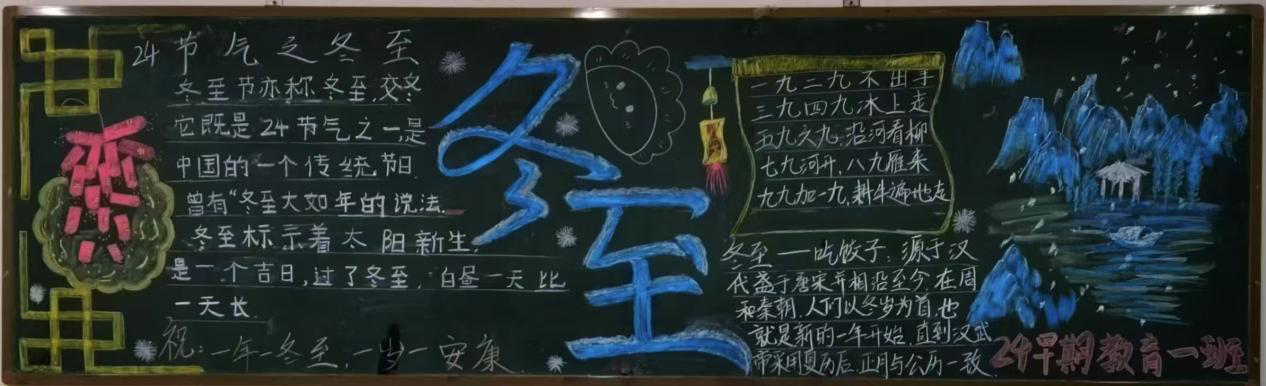 24节气之冬至
冬至节亦称冬至,交冬
它既是24节气之一,是
中国的一个传统节日.
曾有“冬至大如年的说法.
冬至标示着太阳新生.
是一个吉日,过了冬至,白昼一天比
一天长.
祝:一年一冬至,一岁一安康
冬至
一九二九不出手
三九四九冰上走
五九六九,沿河看柳
七九河开,八九雁来
九九加一九,耕牛遍地走
冬至——吃饺子:源于汉
代盛于唐宋并相沿至今.在周
和秦朝.人们以冬岁为首.也
就是新的一年开始.直到汉武
帝采用夏历后.正月与公历一致.
24早期教育一班